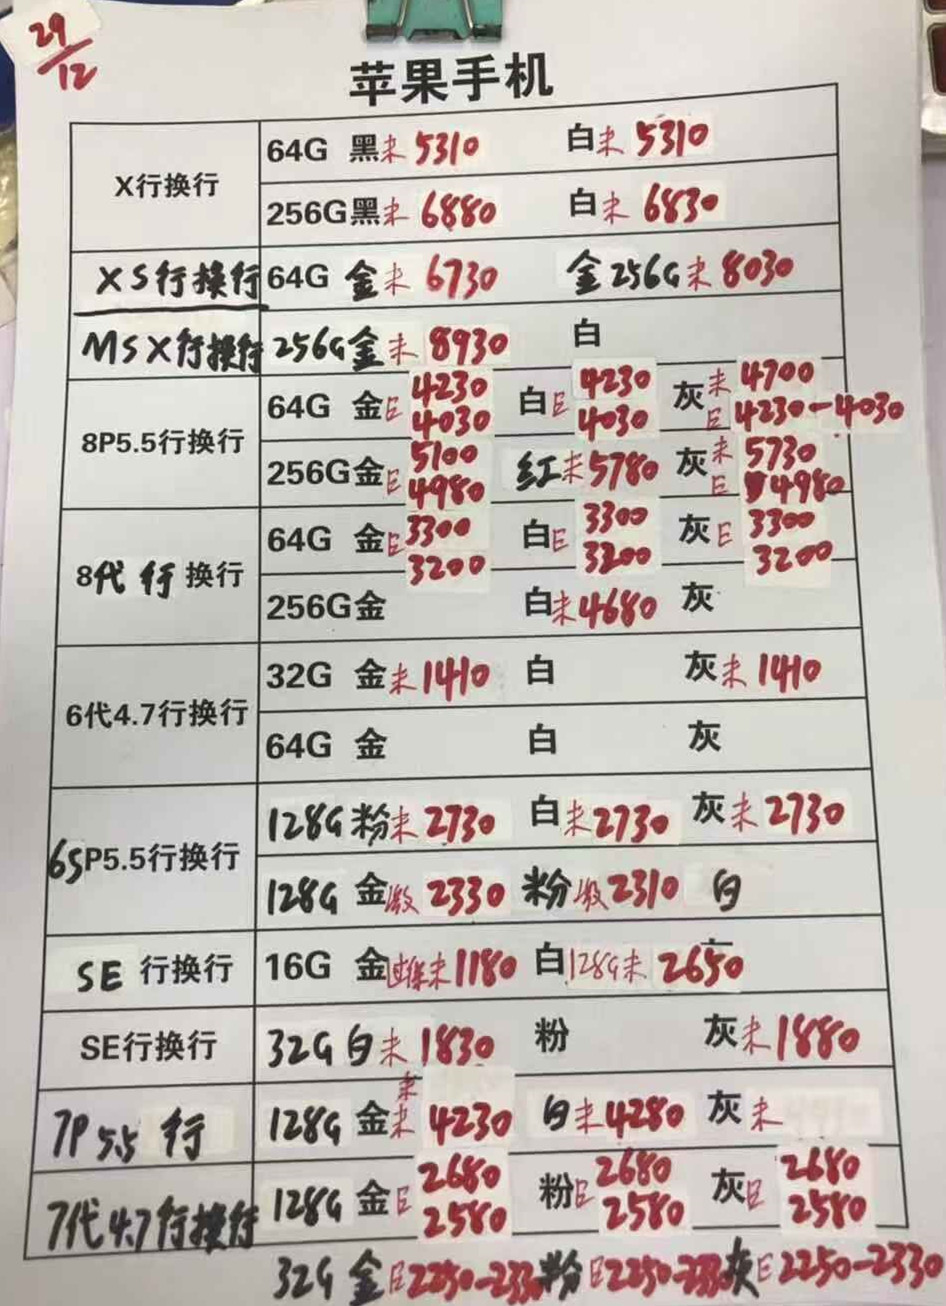 29/12
苹果手机
X行换行 64G 黑未 5310 白未 5310
256G黑未 6880 白未 6830
XS行换行 64G 金未 6730 金256G未 8030
MSX行换行 256G金未 8930 白
8P5.5行换行 64G 金E 4230 4030 白E 4230 4030 灰未 4700 E 4230-4030
256G金E 5100 4980 红未5780 灰未 5730 E 4980
8代行换行 64G 金E 3300 3200 白E 3300 3200 灰E 3300 3200
256G金 白未4680 灰
6代4.7行换行 32G 金未1410 白 灰未1410
64G 金 白 灰
6SP5.5行换行 128G粉未2730 白未2730 灰未2730
128G 金激2330 粉激2310 白
SE 行换行 16G 金过保未1180 白128G未 2650
SE行换行 32G白未1830 粉 灰未1880
7P5.5行 128G 金未 4230 白未4280 灰未
7代4.7行换行 128G 金E 2680 2580 粉E 2680 2580 灰E 2680 2580
32G 金E2250-2330 粉E2250-2330 灰E2250-2330